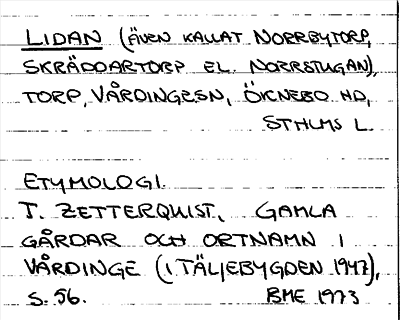 LIDAN (ÄVEN KALLAT NORRBYTORP,
SKRÄDDARTORP EL. NORRSTUGAN),
TORP, VÅRDINGE SN, ÖKNEBO HD,
STHLMS L.
ETYMOLOGI.
T. ZETTERQUIST, GAMLA
GÅRDAR OCH ORTNAMN I
VÅRDINGE (I TÄLJEBYGDEN 1947),
S. 56.
BME 1973